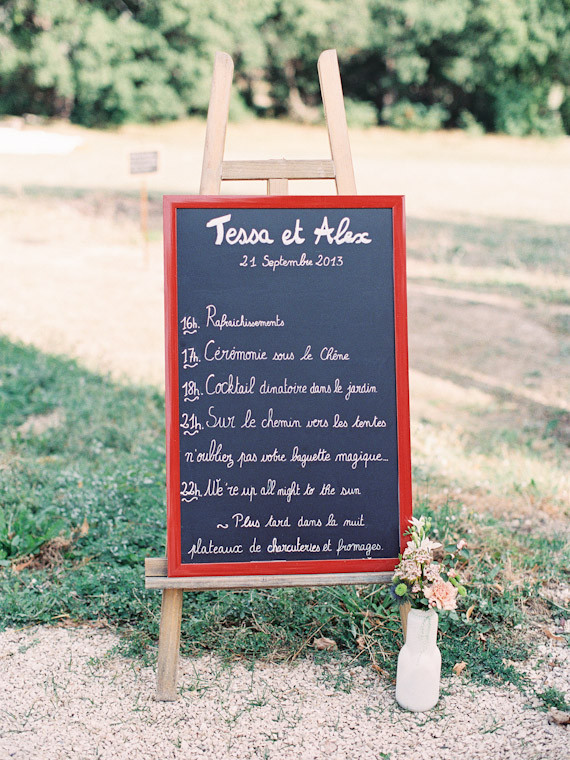 Tessa et Alex
21 Septembre 2013
16h. Rafraichissements
17h. Cérémonie sous le Chêne
18h. Cocktail dinatoire dans le jardin
21h. Sur le chemin vers les tentes
n'oubliez pas votre baguette magique...
22h. We're up all night to the sun
~ Plus tard dans la nuit
plateaux de charcuteries et fromages.